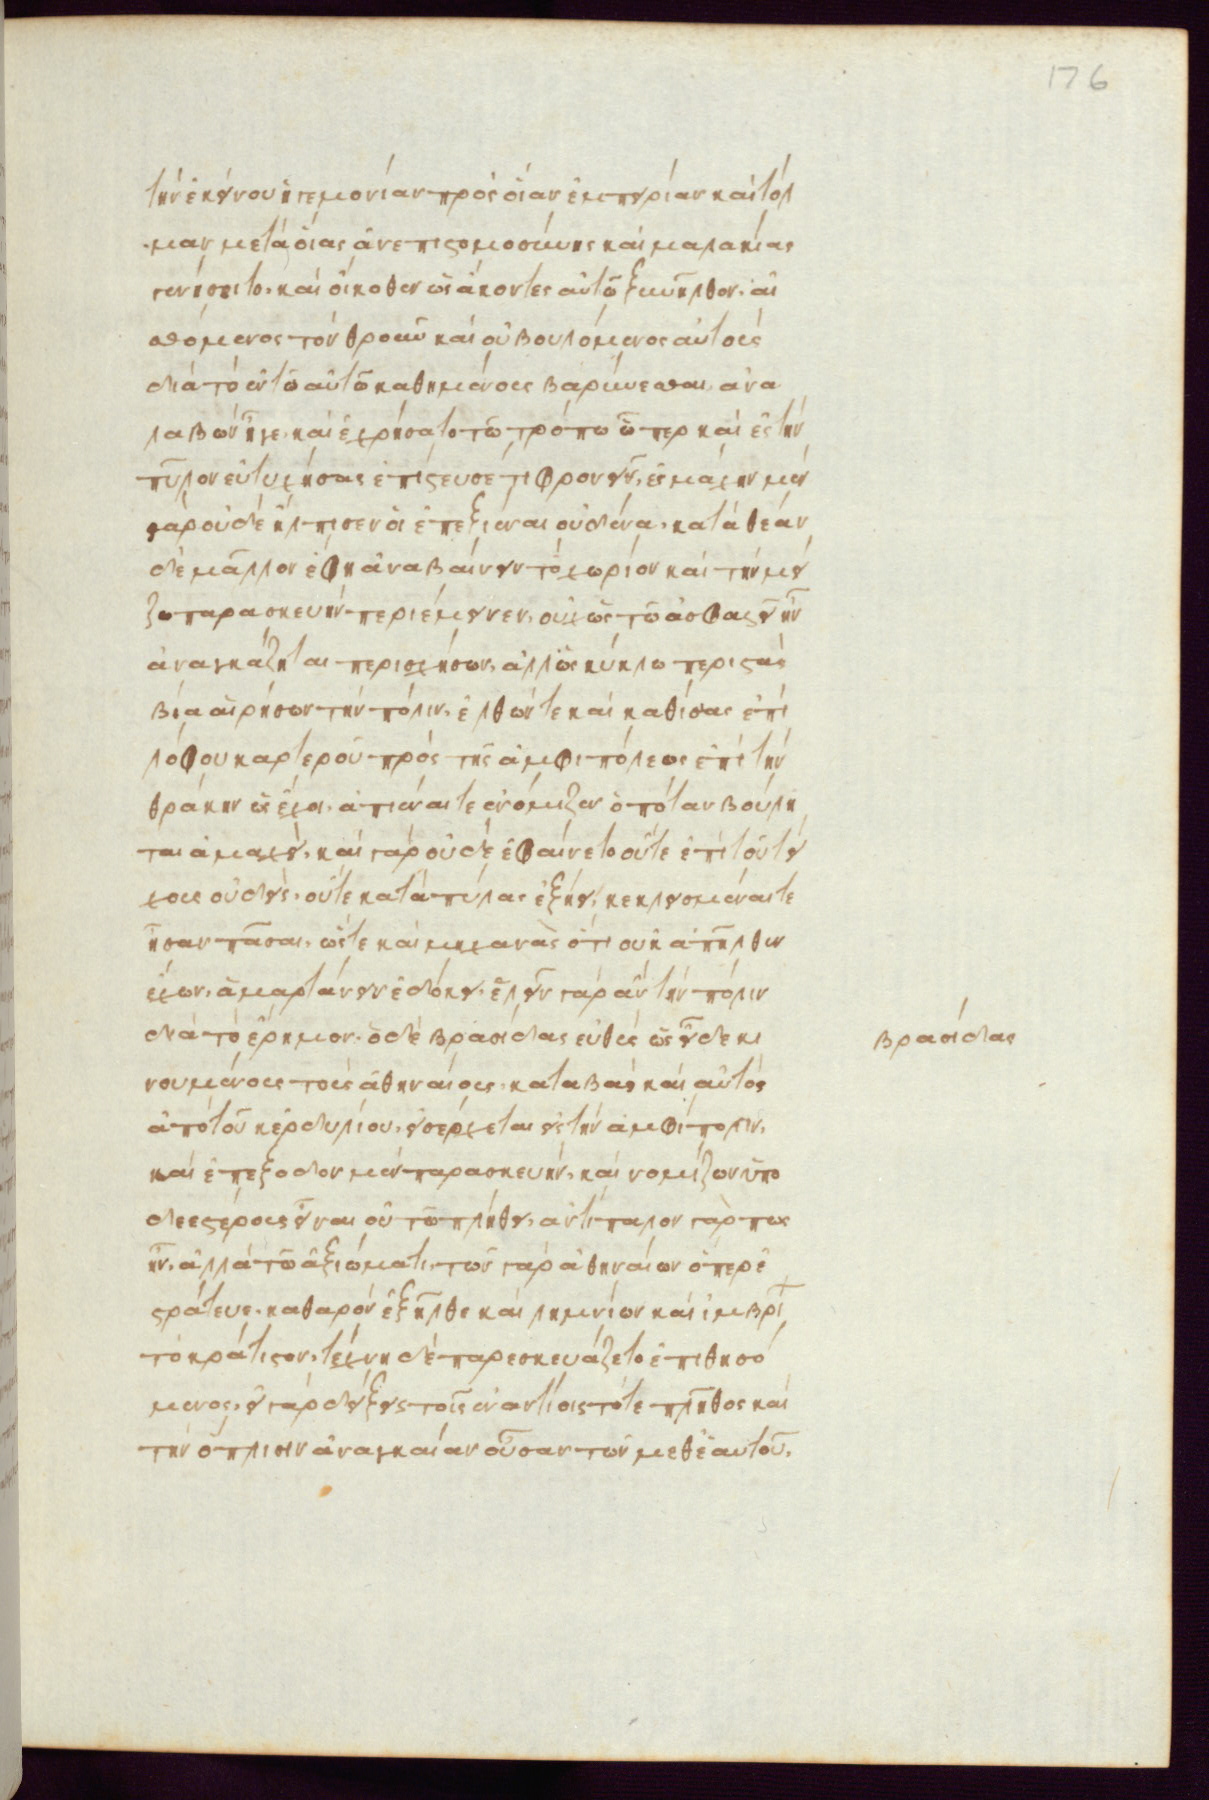 176
τὴν ἐκείνου ἡγεμονίαν πρὸς οἵαν ἐμπειρίαν καὶ τόλ
μαν μετὰ οἵας ἀνεπιστημοσύνης καὶ μαλακίας
γενήσοιτο. καὶ οἴκοθεν ὡς ἄκοντες αὐτῶ ξυνῆλθον. αἰ
σθόμενος τὸν θροῦν καὶ οὐ βουλόμενος αὐτοὺς
διὰ τὸ ἐν τῶ αὐτῶ καθημένους βαρύνεσθαι, ἀνα
λαβὼν ἦγε. καὶ ἐχρήσατο τῶ τρόπω ὧπερ καὶ ἐς τὴν
πῦλον εὐτυχήσας ἐπίστευσέ τι φρονεῖν. ἐς μάχην μὲν
γὰρ οὐδὲ ἤλπισέν οἱ ἐπεξιέναι οὐδένα. κατὰ θέαν
δὲ μᾶλλον ἔφη ἀναβαίνειν τὸ χωρίον καὶ τὴν μεί
ζω παρασκευὴν περιέμεινεν. οὐχ ὡς τῶ ἀσφαλεῖ ἢν
ἀναγκάζηται περισχήσων, ἀλλ' ὡς κύκλω περιστὰς
βία αἱρήσων τὴν πόλιν. ἐλθών τε καὶ καθίσας ἐπὶ
λόφου καρτεροῦ πρὸς τῆς ἀμφιπόλεως ἐπὶ τὴν
θράκην ὡς ἔχοι. ἀπιέναι τε ἐνόμιζεν ὁπόταν βούλη
ται ἀμαχεί. καὶ γὰρ οὐδὲ ἐφαίνετο οὔτε ἐπὶ τοῦ τεί
χους οὐδείς. οὔτε κατὰ πύλας ἐξήει, κεκλεισμέναι τε
ἦσαν πᾶσαι. ὥστε καὶ μηχανὰς ὅτι οὐκ ἀπῆλθεν
ἔχων, ἁμαρτάνειν ἐδόκει. ἑλεῖν γὰρ ἂν τὴν πόλιν
διὰ τὸ ἔρημον. ὁ δὲ βρασίδας εὐθὺς ὡς εἶδε κι
βρασίδας
νουμένους τοὺς ἀθηναίους. καταβὰς καὶ αὐτὸς
ἀπὸ τοῦ κερδυλίου. εἰσέρχεται εἰς τὴν ἀμφίπολιν.
καὶ ἐπέξοδον μὲν παρασκευήν. καὶ νομίζων ὑπο
δεεστέρους εἶναι οὐ τῶ πλήθει. ἀντίπαλον γὰρ πως
ἦν. ἀλλὰ τῶ ἀξιώματι. τῶν γὰρ ἀθηναίων ὅπερ ἐ
στράτευε. καθαρὸν ἐξῆλθε καὶ λημνίων καὶ ἰμβρί
τὸ κράτιστον. τέχνη δὲ παρεσκευάζετο ἐπιθησό
μενος. εἰ γὰρ δείξειε τοῖς ἐναντίοις τό τε πλῆθος καὶ
τὴν ὅπλισιν ἀναγκαίαν οὖσαν τῶν μεθ' ἑαυτοῦ.